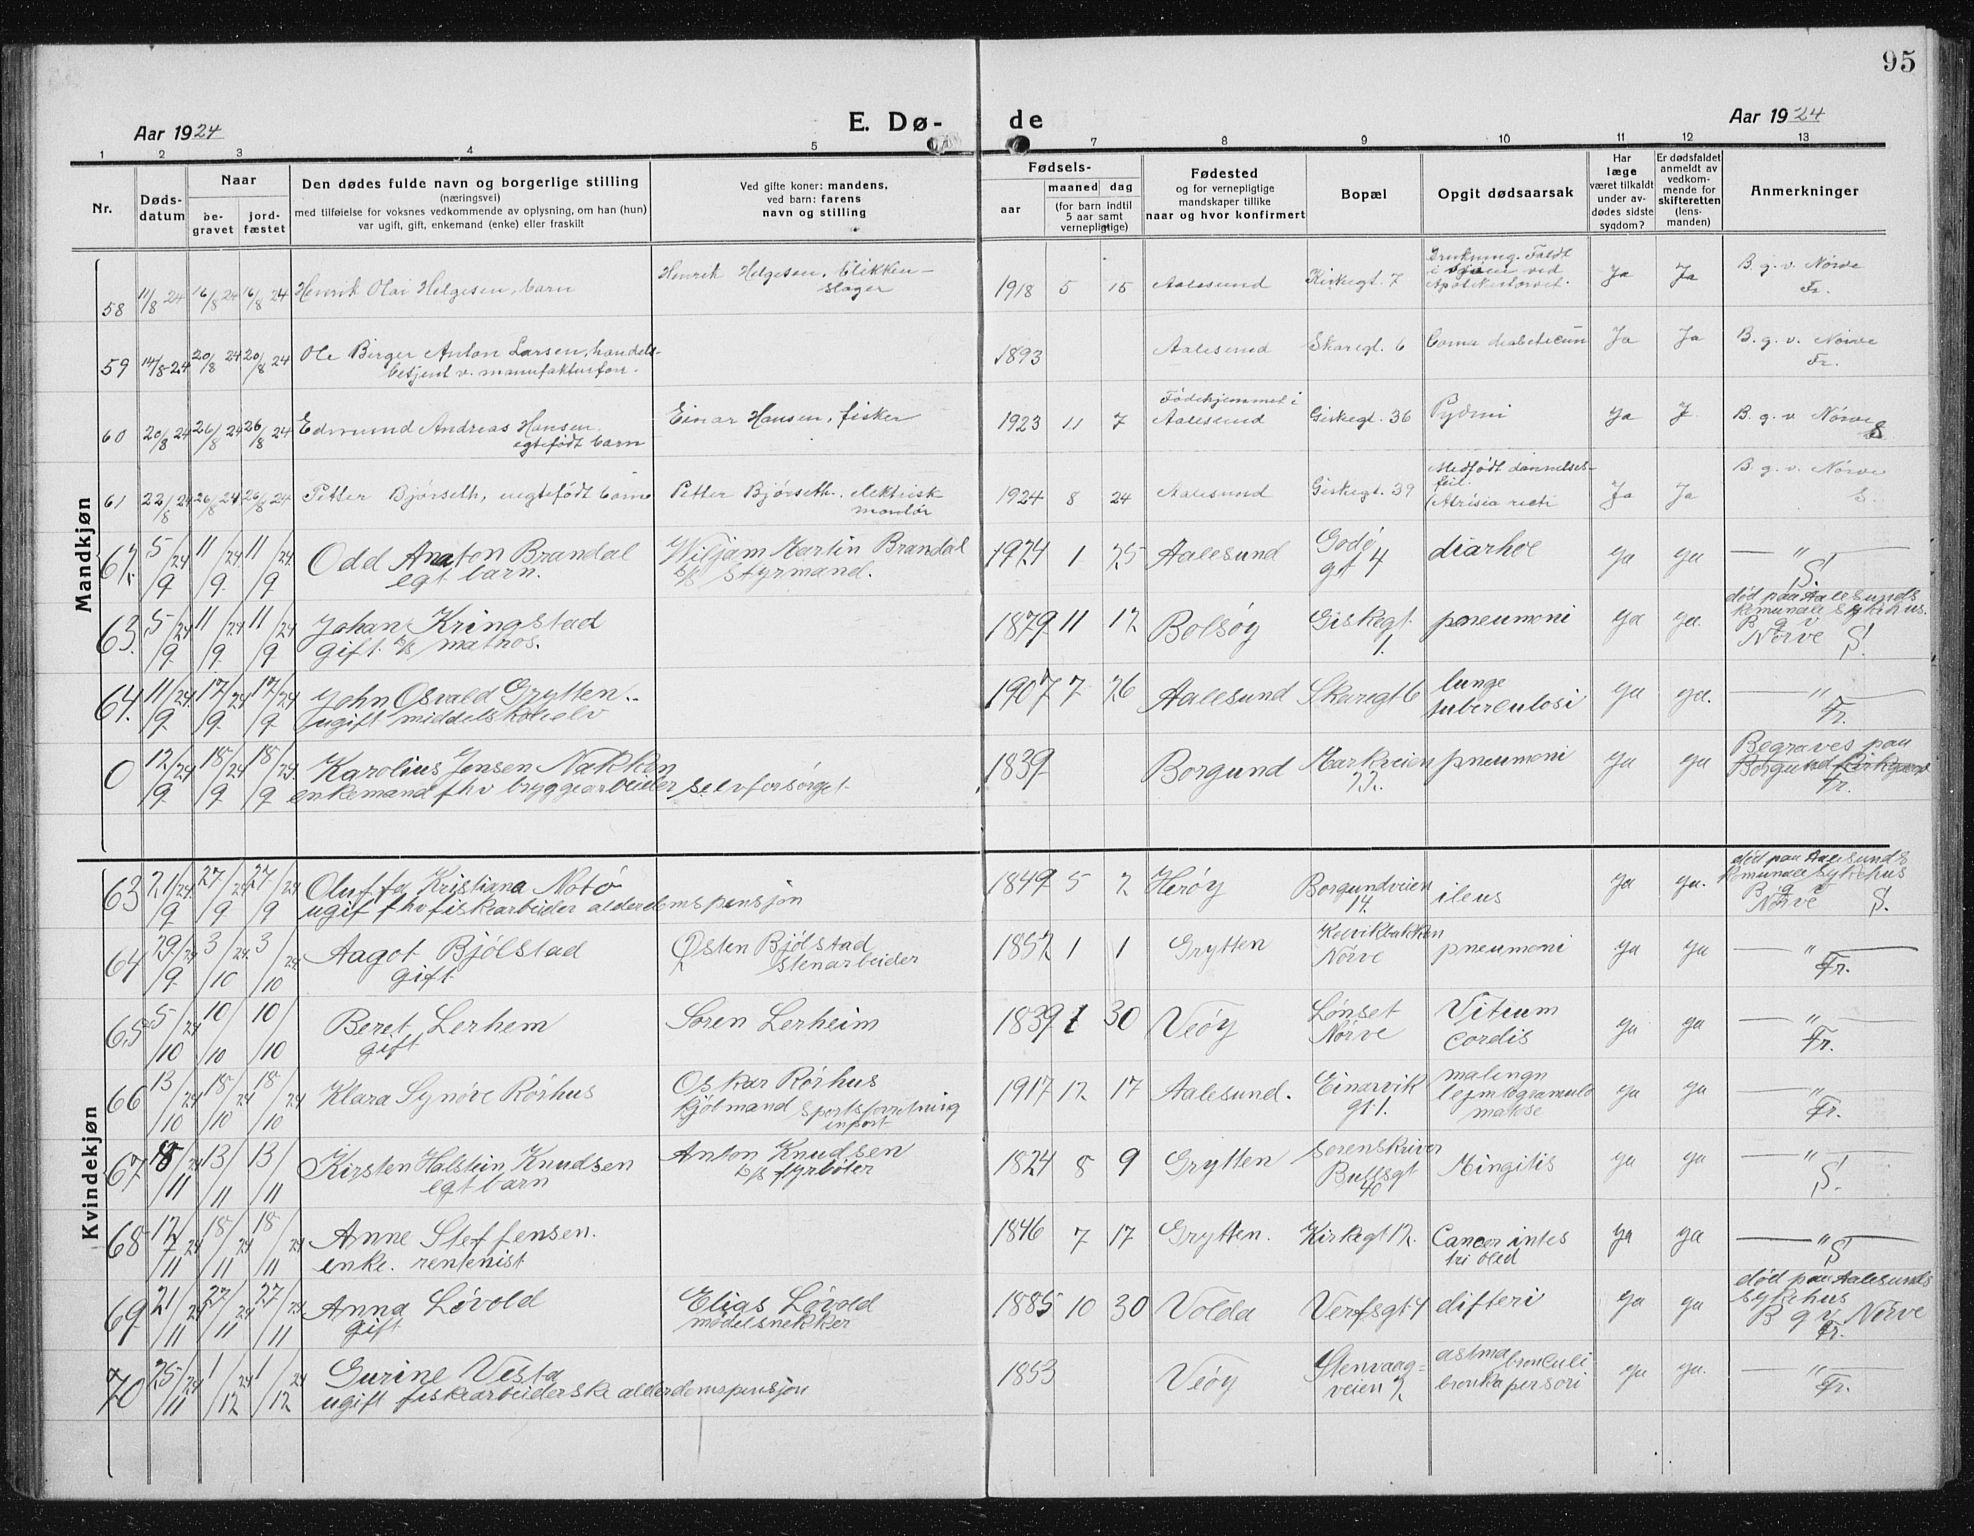 95
Aar 1924
E. Dø-
de
Aar 1924
1 2 3 4 5 7 8 9 10 11 12 13
Nr.
Døds-
datum
Naar
be-
gravet
jord-
fæstet
Den dødes fulde navn og borgerlige stilling
(næringsvei)
med tilføielse for voksnes vedkommende av oplysning, om han (hun)
var ugift, gift, enkemand (enke) eller fraskilt
Ved gifte koner: mandens,
ved barn: farens
navn og stilling
Fødsels-
aar
maaned dag
(for barn indtil
5 aar samt
vernepligtige)
Fødested
og for vernepligtige
mandskaper tillike
naar og hvor konfirmert
Bopæl
Opgit dødsaarsak
Har
læge
været tilkaldt
under av-
dødes sidste
sygdom?
Er dødsfaldet
anmeldt av
vedkom-
mende for
skifteretten
(lens-
manden)
Anmerkninger
Mandkjøn
58 11/8 24 16/8 24 16/8 24 Henrik Olai Helgesen, barn Henrik Helgesen, blikken-
slager 1918 5 15 Aalesund Kirkegt. 7 Drukning. Faldt
i sjøen ved
Apotekertorvet. Ja Ja B. g. v. Nörve
Fr.
59 14/8-24 20/8 24 20/8 24 Ole Birger Anton Larsen, handels-
betjent v. manufakturforr. 1893 Aalesund Skaregt. 6 Coma diabeticum Ja Ja B. g. v. Nörve
Fr.
60 20/8 24 26/8 24 26/8 24 Edmund Andreas Hansen
egtefødt barn Einar Hansen, fisker 1923 11 7 Fødehjemmet i
Aalesund Giskegt. 36 Pydmi Ja J. B. g. v Nörve
S
61 22/8 24 26/8 24 26/8 24 Petter Bjørseth, uegtefödt barn Petter Bjørseth, elektrisk
montör 1924 8 24 Aalesund Giskegt. 39 Medfödt dannelses-
feil.
(Atrisia recti Ja Ja B. g. v. Nörve
S.
62. 5/9 24 11/9 24 11/9 24 Odd Anton Brandal
egt barn. Wiljam Martin Brandal
b/s Styrmand. 1924 1 25 Aalesund Godö
gt 4 diarhoe ja ja — " —
S!
63. 5/9 24 11/9 24 11/9 24 Johan Kringstad
gift. b/s matros. 1879 11 12 Bolsöy Giskegt
1. pneumoni ja ja. död paa Aalesunds
komunale Sykehus.
B g v
Nörve S!
64. 11/9 24 17/9 24 17/9 24 John Osvald Grytten..
ugift middelskolelv 1907 7 26 Aalesund Skaregt 6 lunge
tuberculosi ja ja. — " —
Fr.
0 12/9 24 18/9 24 18/9 24 Karolius Jensen Nakken
enkemand fhv bryggearbeider selvforsörget 1839 Borgund Markveien
73. pneumoni ja ja Begraves paa
Borgund Kirkgard
Fr.
Kvindekjøn
63 21/9 24 27/9 24 27/9 24 Oluffa Kristiana Notö
ugif fhv fiskearbeider alderdomspensjon 1849 5 2 Heröy Borgundveien
14. ileus ja ja. död paa Aalesunds
komunale Sykehus
B g v
Nörve S!
64 29/9 24 3/10 24 3/10 24 Aagot Bjölstad
gift Östen Bjölstad
stenarbeider 1852 1 1 Grytten Kolvikbakken
Nörve pneumoni ja ja — " —
Fr.
65 5/10 24 10/10 10/10 Beret Lerhem
gift Sören Lerheim 1839 1 30 Veöy Lönset
Nörve Vitium
cordis ja ja — " —
Fr.
66 13/10 24 18/10 24 18/10 24 Klara Synöve Rörhus Oskar Rörhus
kjöbmand Sportsforretning
inport 1917 12 17 Aalesund. Einarvik
gt 1. malingn ja ja — " —
Fr.
67 8/11 24 13/11 13/11 Kirsten Halstein Knudsen
egt barn Anton Knudsen
b/s fyrböter 1824 8 9 Grytten Sorenskriver
Bullsgt
40 Mingitis ja ja — " —
S!
68 12/11 24 18/11 24 18/11 24 Anne Steffensen.
enke. rentenist 1846 7 17 Grytten. Kirkegt 12. Cancer intes ja ja — " —
S!
69 21/11 24 27/11 24 27/11 24 Anna Lövold
gift Elias Lövold
modelsnekker 1885 10 30 Volda Verfsgt 4 difteri ja ja död paa Aalesunds
Sykehus
B g v Nörve
Fr.
70 25/11 24 1/12 24 1/12 24 Gurine Vestad
ugift fiskearbeiderske alderdomspensjon 1853 Veöy Stenvaag=
veien astma
ja ja. — " —
Fr.